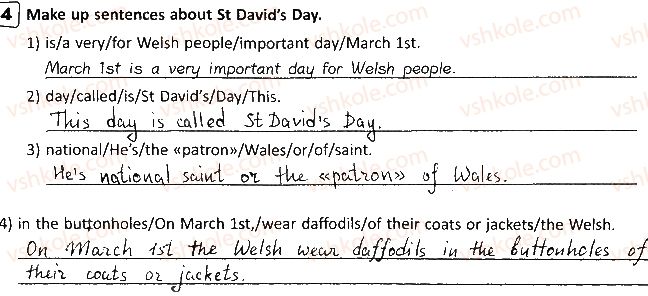 4 Make up sentences about St David's Day.
1) is/a very/for Welsh people/important day/March 1st.
March 1st is a very important day for Welsh people.
2) day/called/is/St David's/Day/This.
This day is called St David's Day.
3) national/He's/the «patron»/Wales/or/of/saint.
He's national saint or the «patron» of Wales.
4) in the buttonholes/On March 1st,/wear daffodils/of their coats or jackets/the Welsh.
On March 1st the Welsh wear daffodils in the buttonholes of
their coats or jackets.